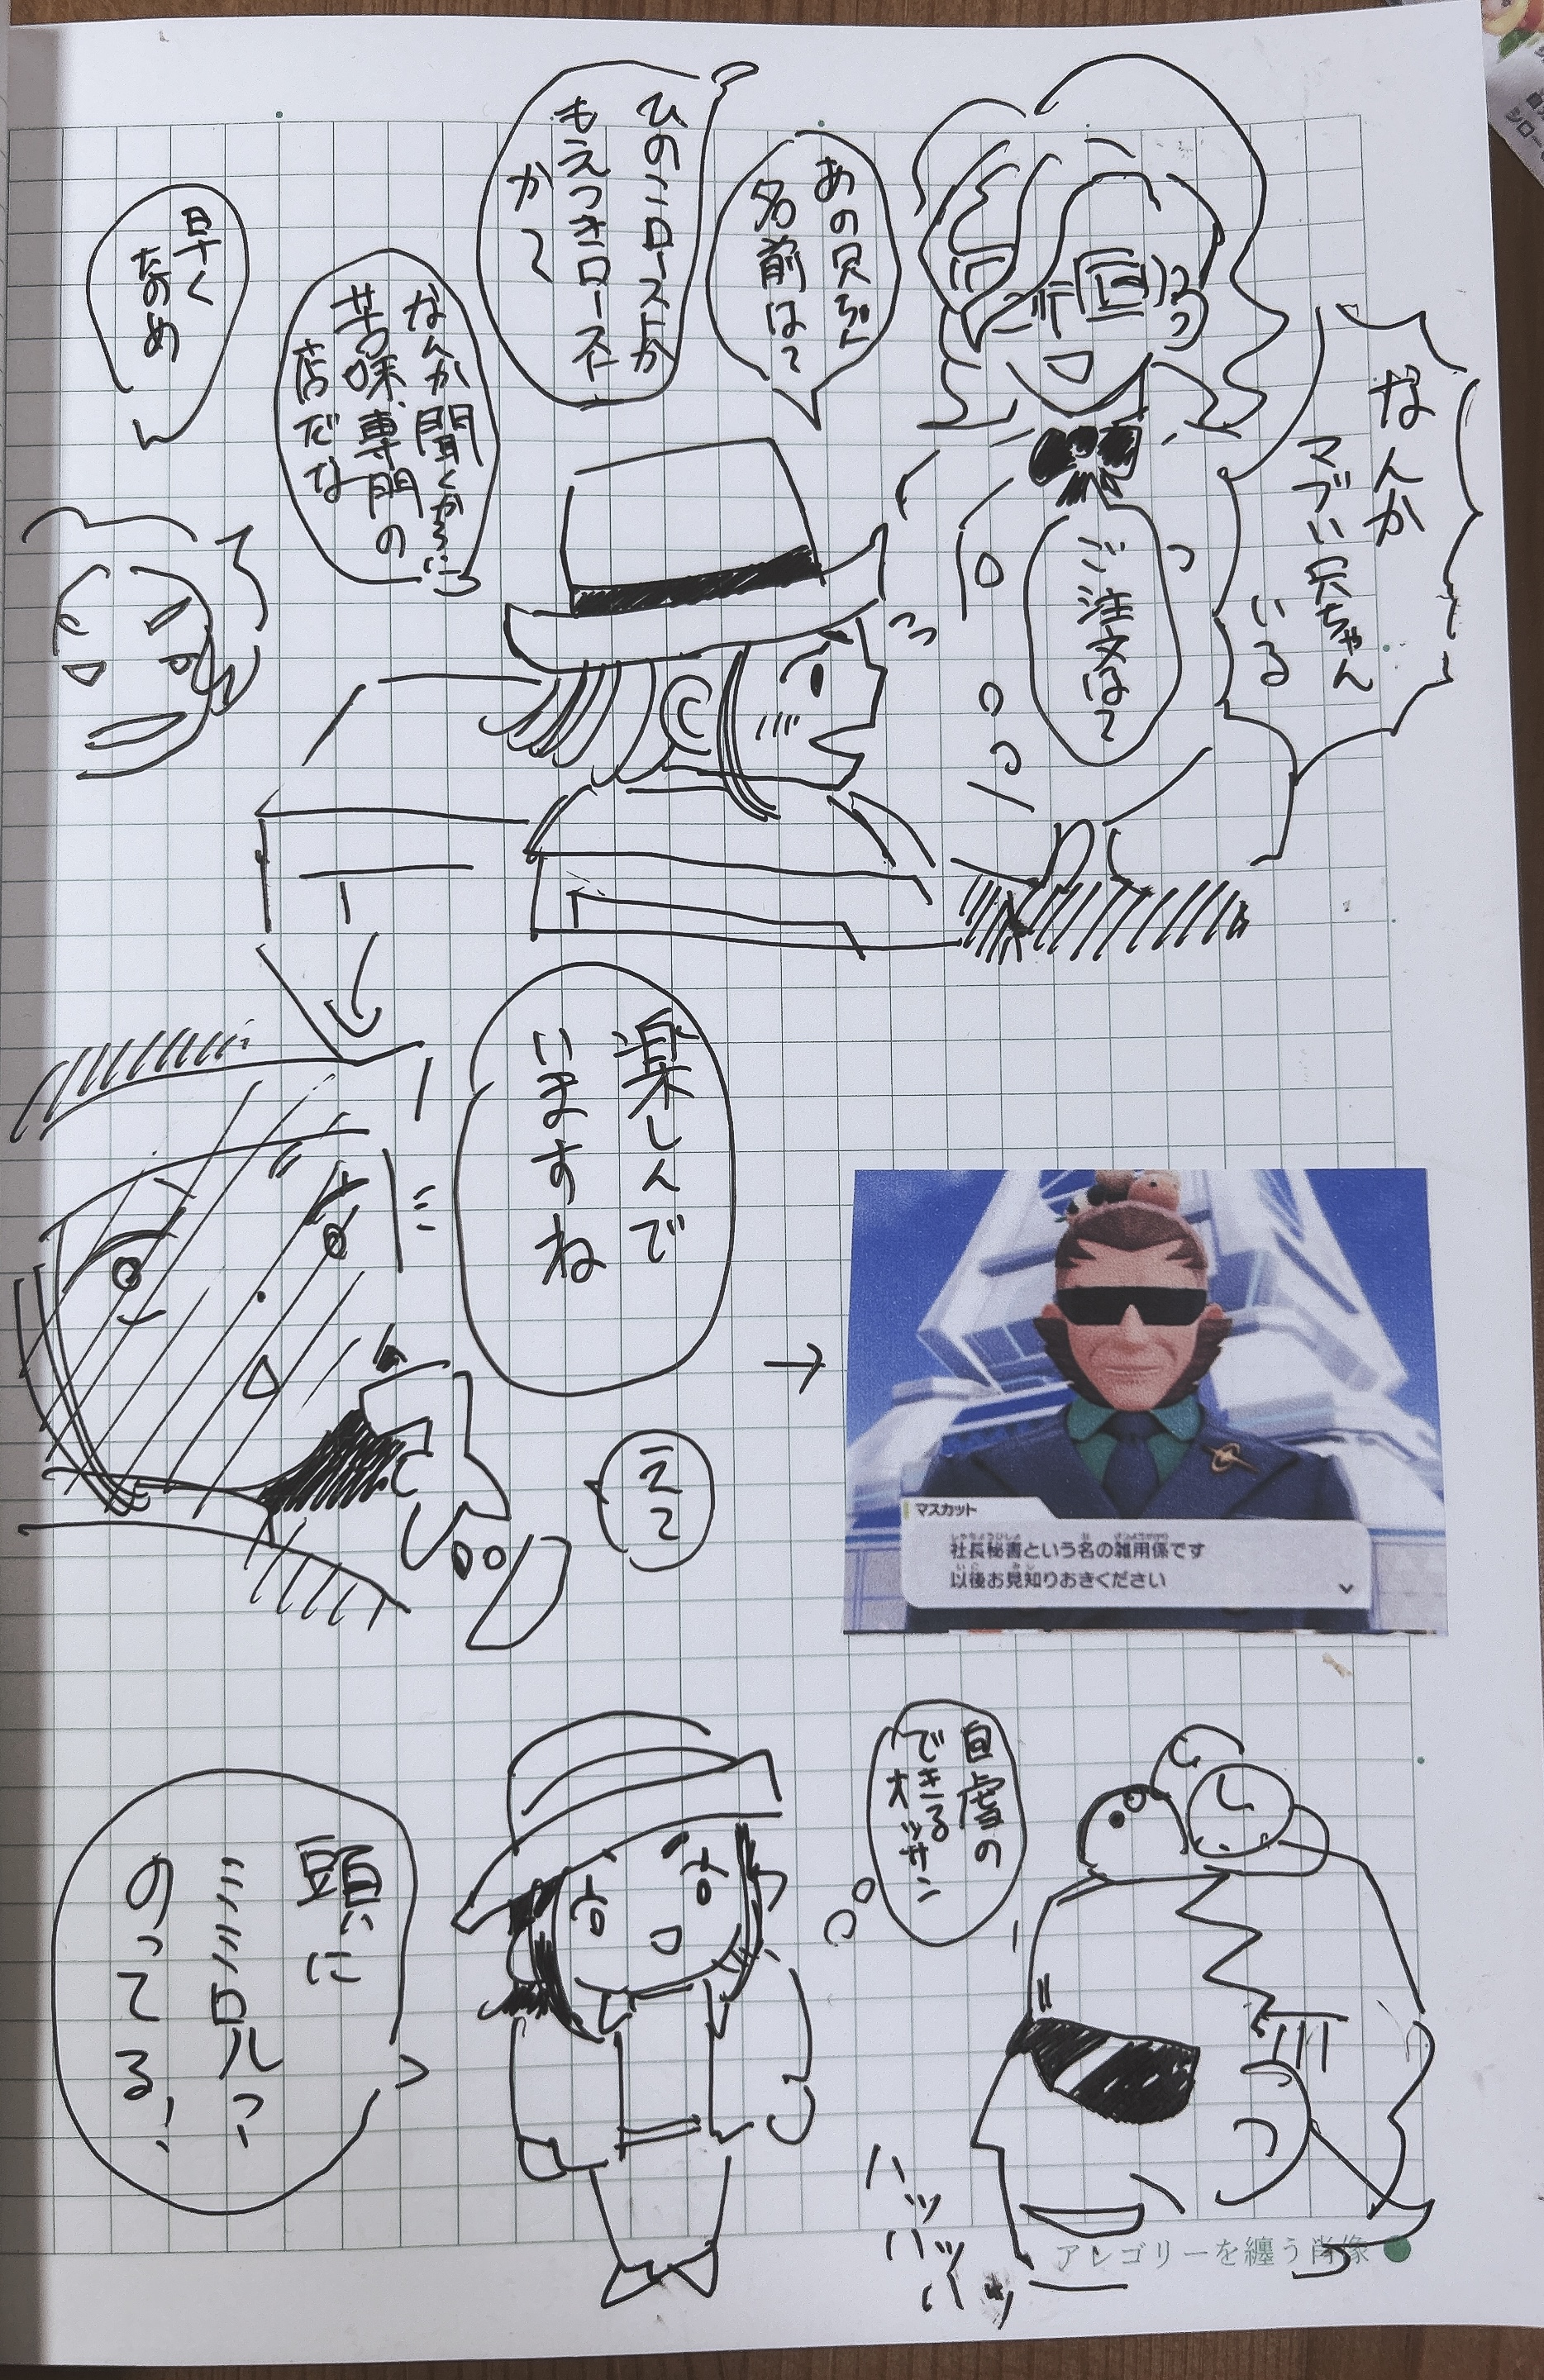 なんか
マブい兄ちゃん
いる
ご注文は?
あの兄ちゃん
名前は?
ひのこローストか
もえつきローストか
なんか聞くからに
苦味専門の
店だな
早く
なのめ
楽しんで
いますね
え?
マスカット
社長秘書という名の雑用係です
以後お見知りおきください
自虐の
できるオッサン
頭に
ミミロル?
のってる!
ハッ
ハッ
ハッ
アレゴリーを纏う肖像